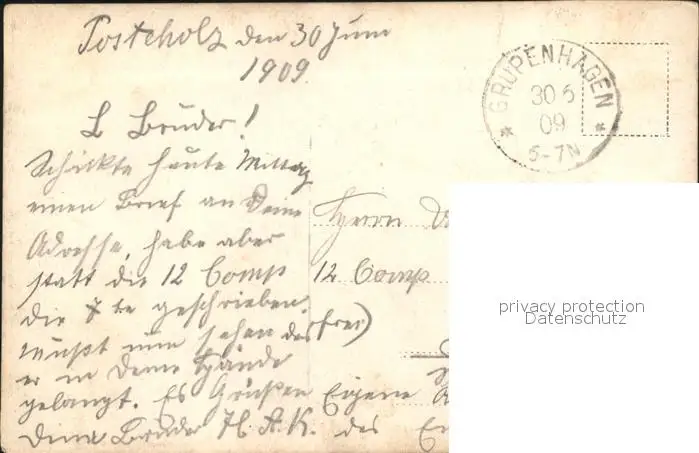 Posteholz den 30 Juni
1909.
L Bruder!
Schickte heute Mittag
einen Brief an Deine
Adresse, habe aber
statt die 12 Comp
die 7te geschrieben.
Mußt nun sehen das
er in Deine Hände
gelangt. Es Grüßen
Deine Brüder H. A. K.
GRUPENHAGEN
30 6
09
* 6-7N *
Herrn
12 Comp
frei)
Eigene
des
privacy protection
Datenschutz